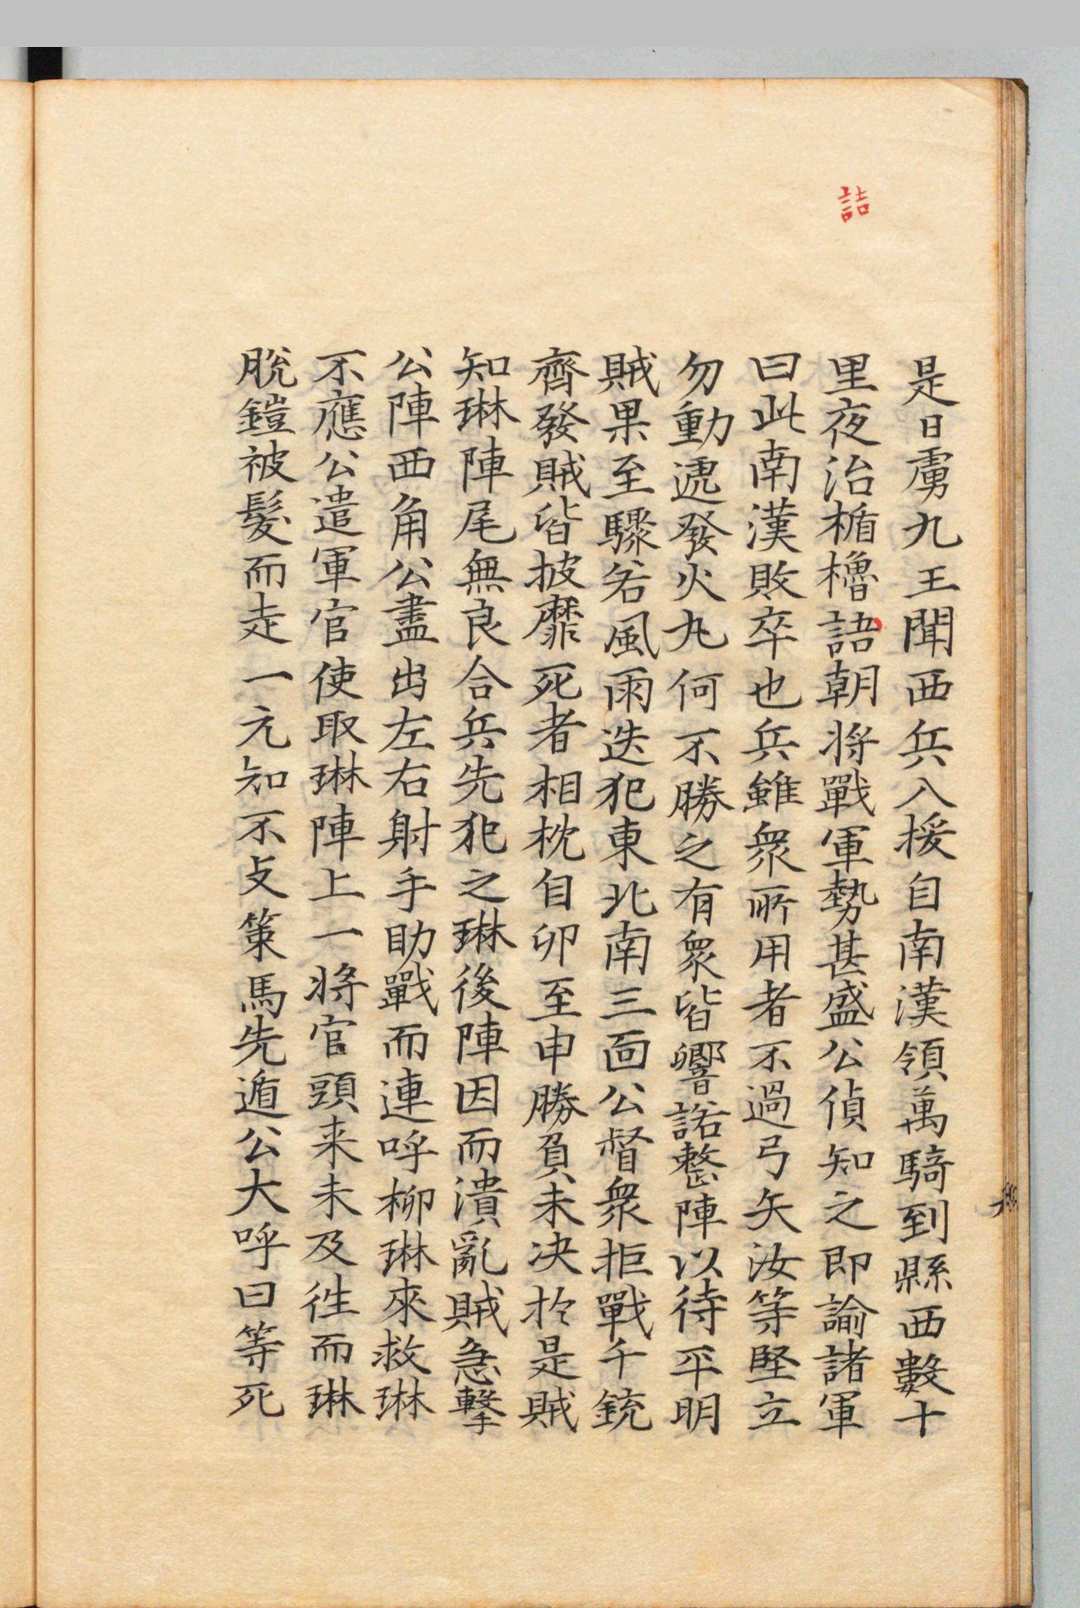 詰
是日虜九王聞西兵入援自南漢領萬騎到縣西數十
里夜治楯櫓語朝將戰軍勢甚盛公偵知之即諭諸軍
曰此南漢敗卒也兵雖衆所用者不過弓矢汝等堅立
勿動遞發火丸何不勝之有衆皆響諾整陣以待平明
賊果至驟若風雨迭犯東北南三面公督衆拒戰千銃
齊發賊皆披靡死者相枕自卯至申勝負未决於是賊
知琳陣尾無良合兵先犯之琳後陣因而潰亂賊急擊
公陣西角公盡出左右射手助戰而連呼柳琳來救琳
不應公遣軍官使取琳陣上一將官頭来未及徃而琳
脫鎧被髮而走一元知不攴策馬先遁公大呼曰等死